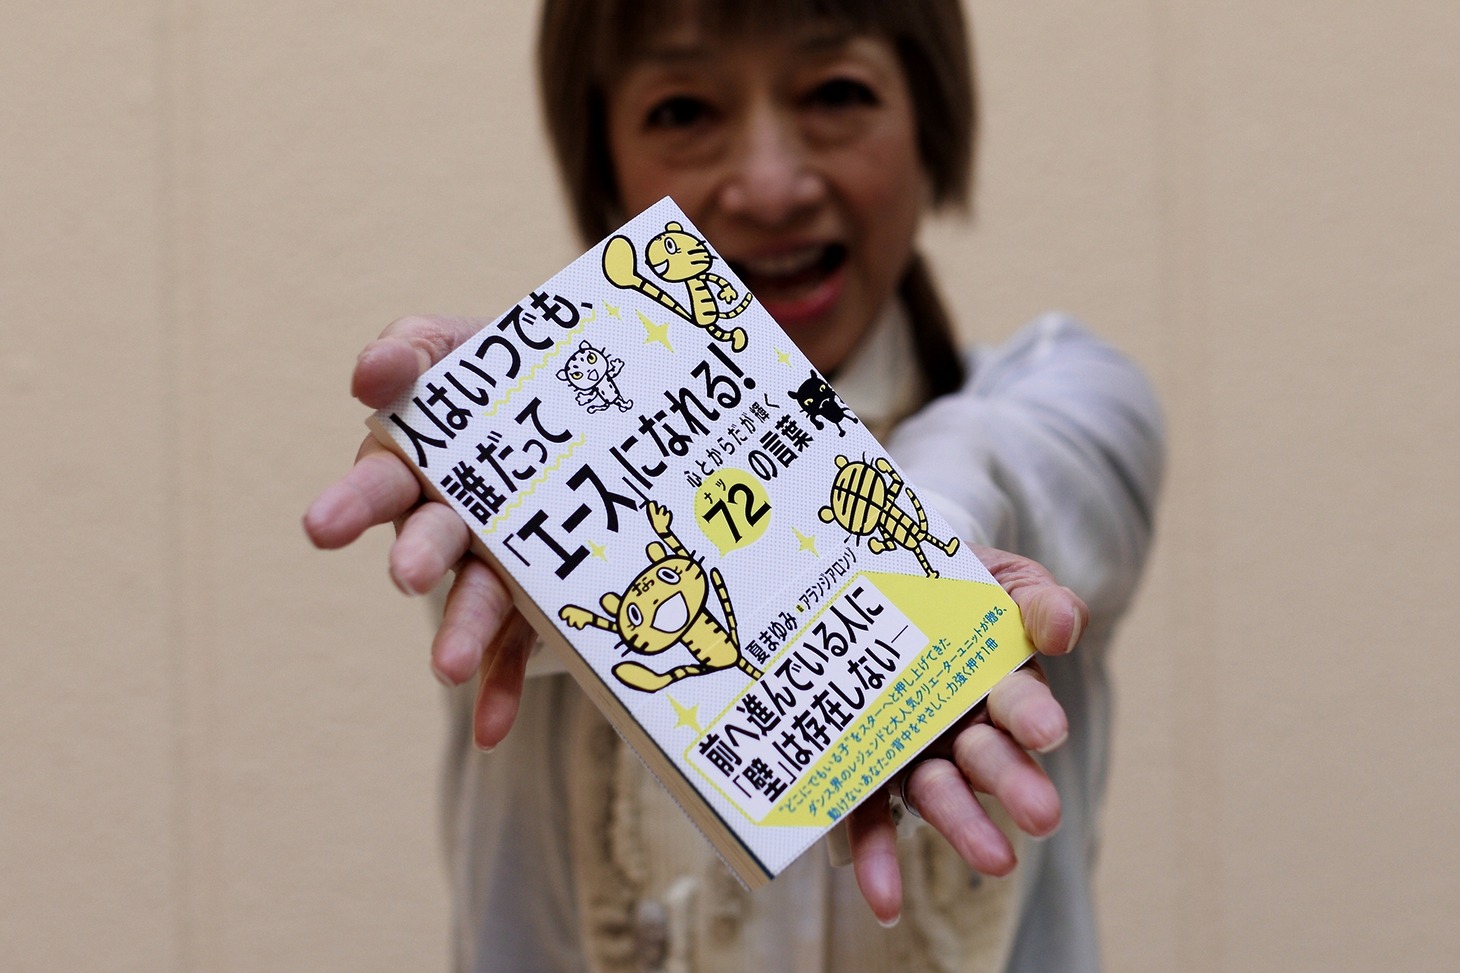 人はいつでも、
誰だって
「エース」になれる!
心とからだが輝く
ナツ
72の言葉
な
夏まゆみ 画 アランジアロンゾ
前へ進んでいる人に
「壁」は存在しない―
“どこにでもいる子”をスターへと押し上げてきた
ダンス界のレジェンドと大人気クリエーターユニットが贈る、
動けないあなたの背中をやさしく、力強く押す1冊